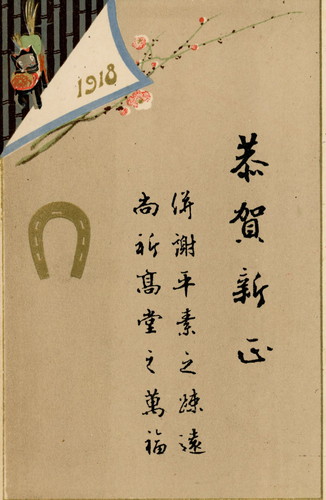 1918
恭賀新正
併謝平素之疎遠
尚祈高堂之萬福